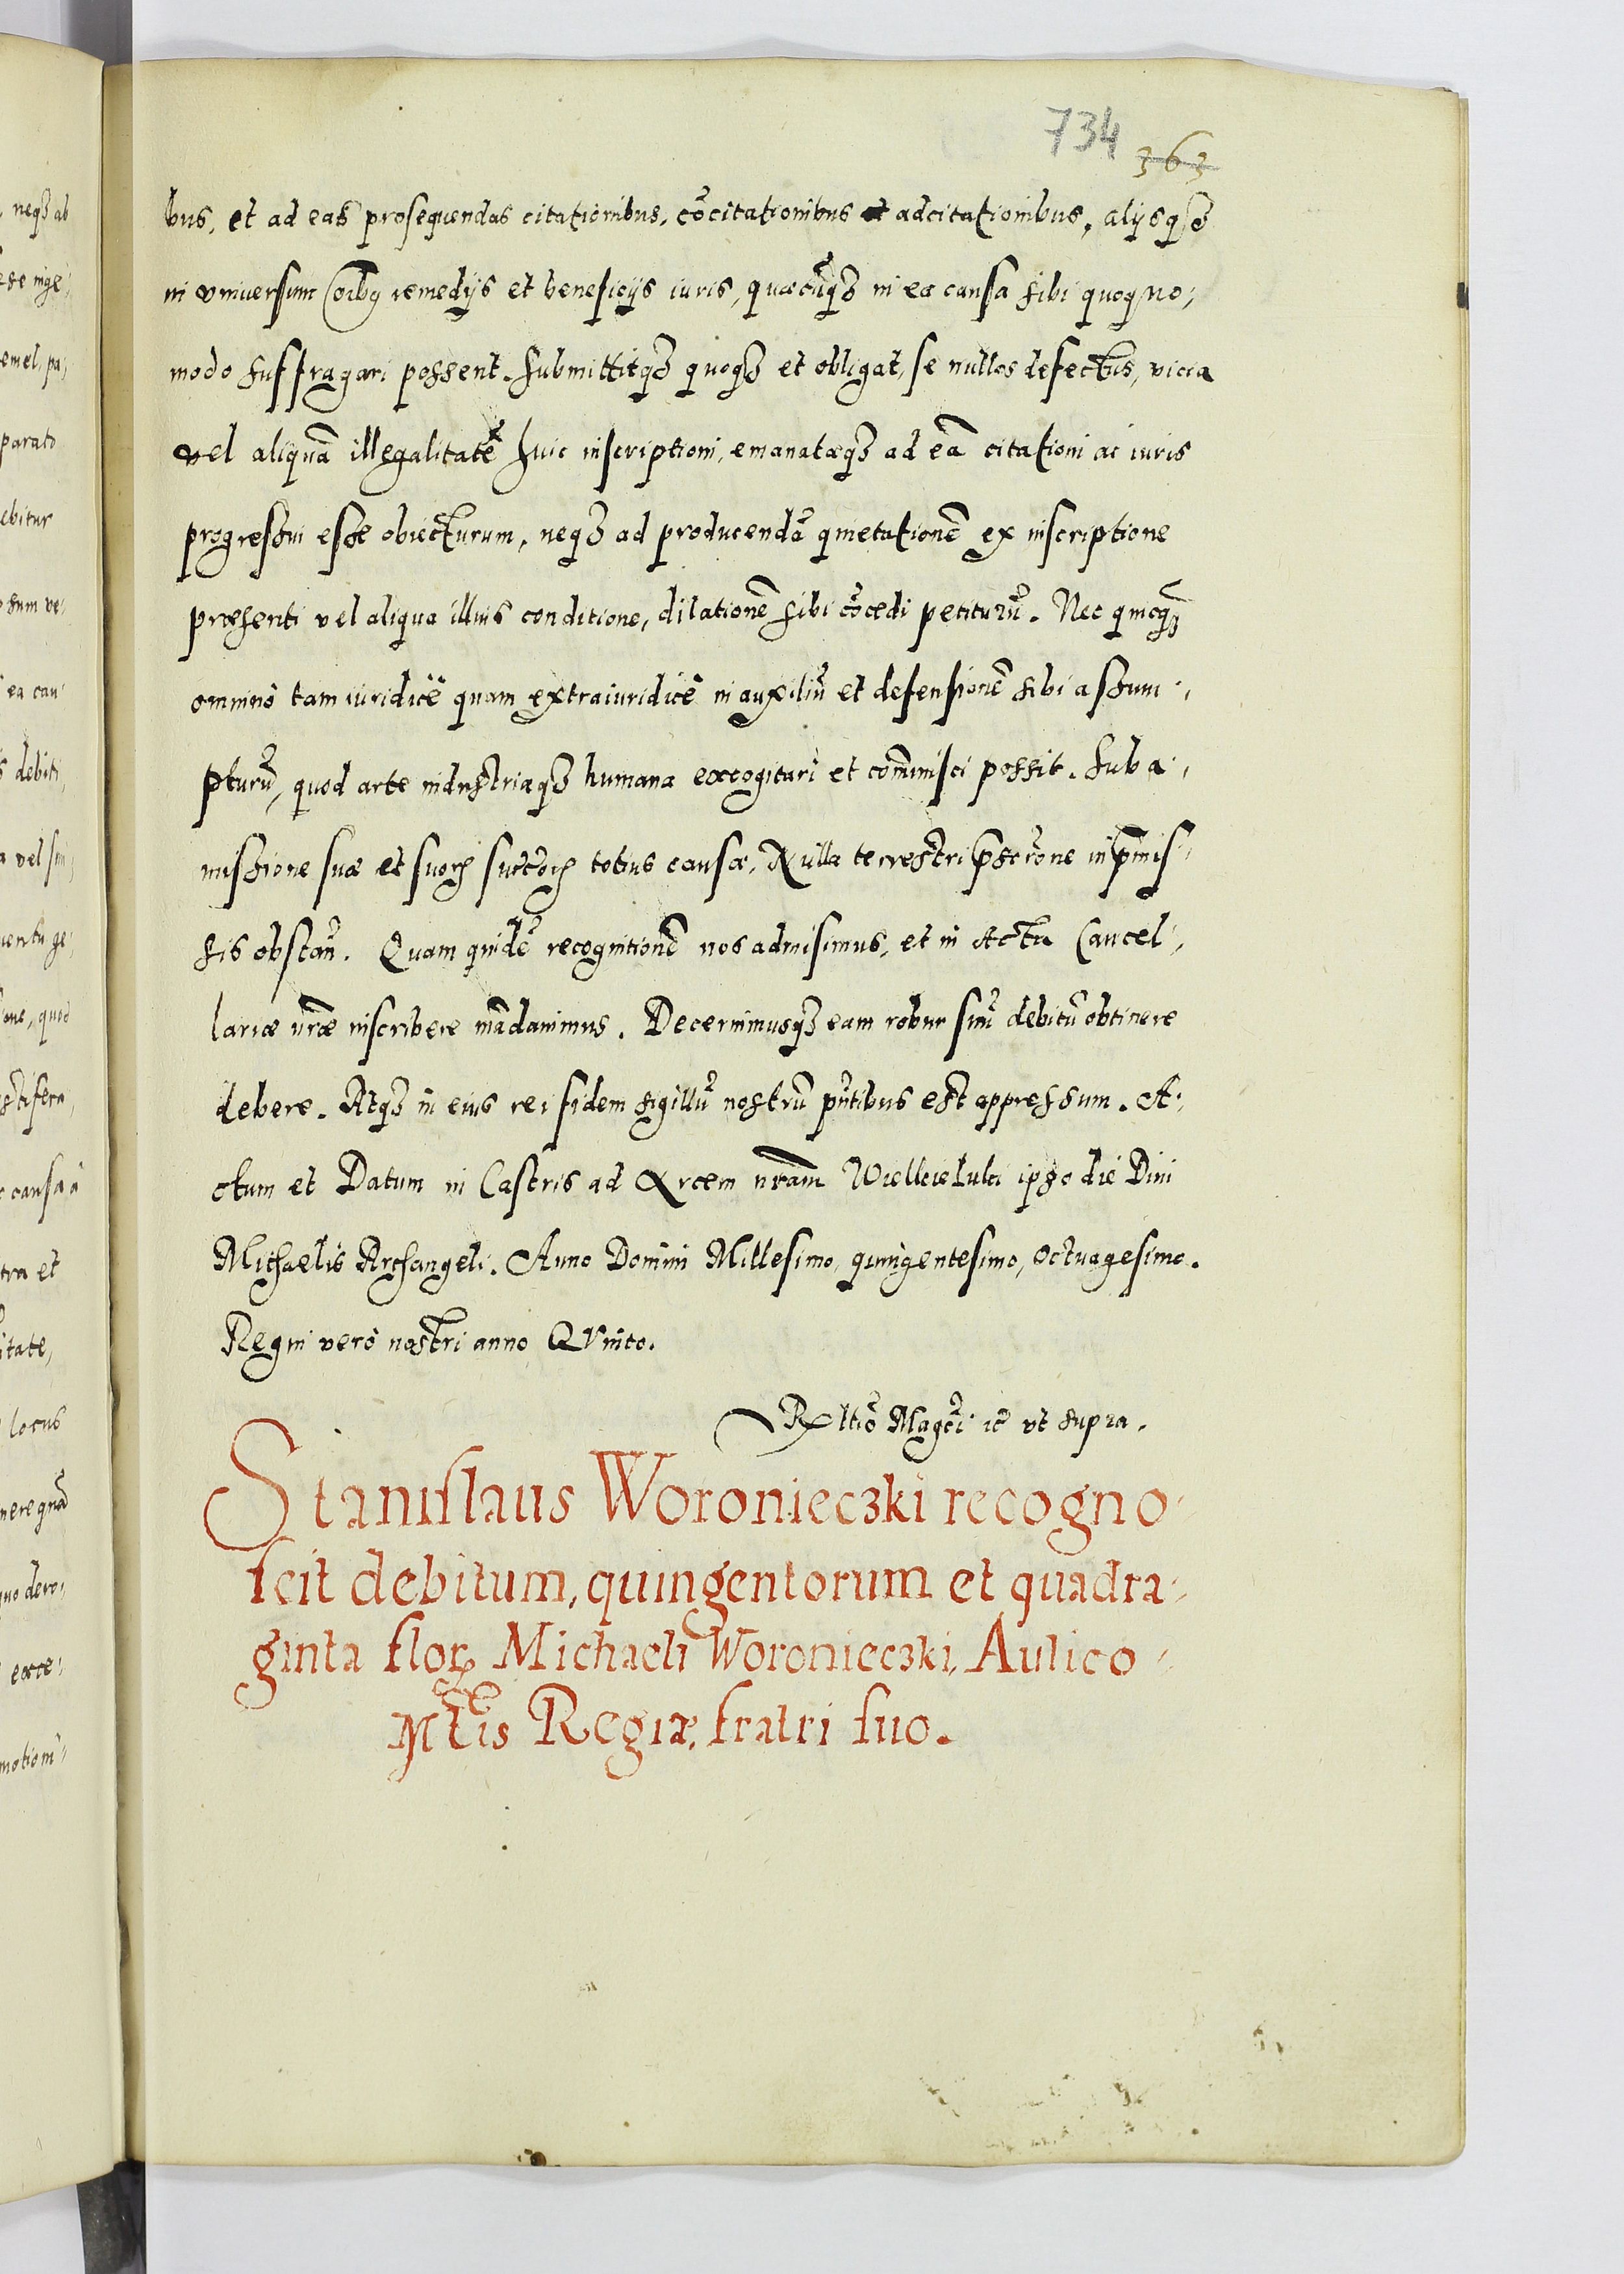 734 363
bus, et ad eas prosequendas citationibus, cõcitationibus et adcitationibus, alijsq3
in vniuersum oĩbꝰ remedijs et beneficijs iuris, quæcũq3 in ea causa sibi quoquo;
modo suffragari possent. Submittitq3 quoq3 et obligat, se nullos defectus, vicia
vel aliquã illegalitatẽ huic inscriptioni, emanatæq3 ad eã citationi ac iuris
progressui esse obiecturum, neq3 ad producendã quietationẽ ex inscriptione
præsenti vel aliqua illius conditione, dilationẽ sibi cõcedi petiturũ. Nec quicq̃3
omninò tam iuridicè quam extraiuridicè in auxiliũ et defensionẽ sibi assum;
pturũ, quod arte industriaq3 humana excogitari et com̃inisci possit. Sub a;
missione suæ et suoꝝ succ̃oꝝ totius causæ, Nulla terrestri p̃scr̃one in p̃mis;
sis obstañ. Quam quidẽ recognitionẽ nos admisimus, et in Acta Cancel;
lariæ nr̃æ inscribere mãdauimus. Decernimusq3 eam robur suũ debitũ obtinere
debere. Atq3 in eius rei fidem sigillũ nostrũ pñtibus est appressum. A;
ctum et Datum in Castris ad Arcem nr̃am Wielkieluki ipso die Diui
Michaelis Archangeli. Anno Domini Millesimo, quingentesimo, octuagesimo.
Regni verò nostri anno QVinto.
Rltiõ Magc̃i ic̃ vt supra.
Stanislaus Woronieczki recogno;
scit debitum, quingentorum et quadra;
ginta floꝝ Michaeli Woronieczki, Aulico
Mt̃is Regiæ, fratri suo.